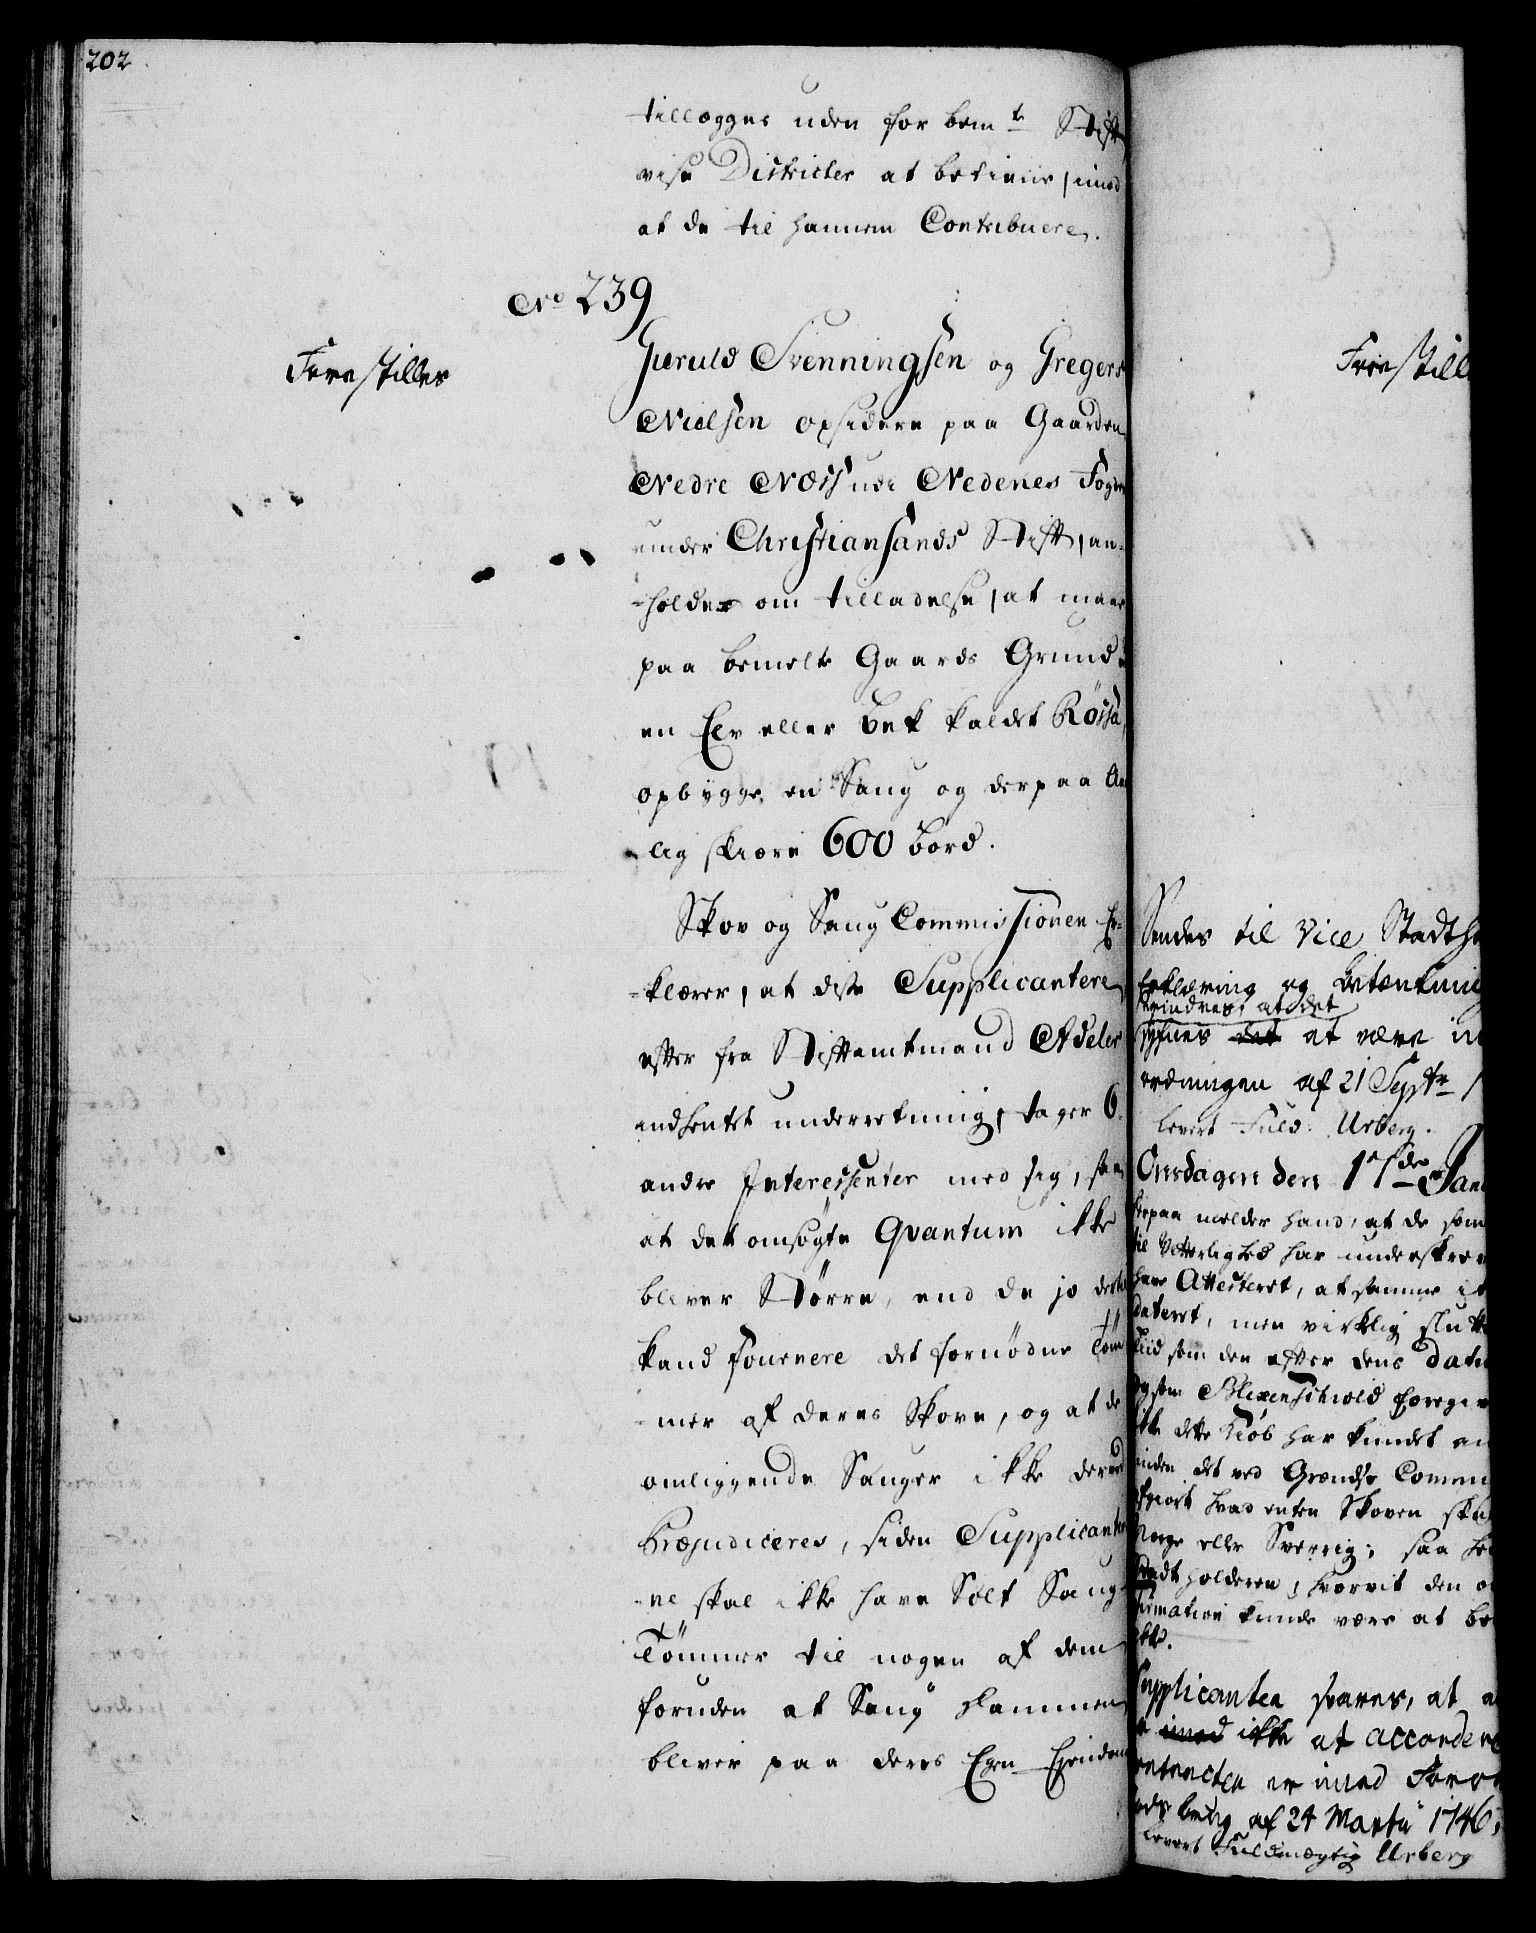 202
tillægges uden for bemte Stift
visse Districter at betiene, imod
at de til hannem Contribuere.
No 239
Forestilles
Gieruld Svenningsen og Gregers
Nielsen opsidere paa Gaarden
Nedre Næss udi Nedenes Fogderi
under Christiansands Stift, an-
-holder om tilladelse, at maae
paa bemelte Gaards Grund
en Elv eller bek kaldet Rössaa,
opbygge en Saug og derpaa Aar
lig skiære 600 bord.
Skov og Saug Commissionen Er-
-klærer, at disse Supplicantere
efter fra Stiftamtmand Adeler
indhentet underretning, tager 6.
andre Interessenter med sig, saa
at det omsøgte Qvantum ikke
bliver Større, end de jo dertil
kand fournere det fornødne Töm
-mer af deres Skove, og at de
omliggende Sauger ikke derved
Præjudiceres, siden Supplicante
-ne skal ikke have Solt Saug-
Tömmer til nogen af dem
foruden at Saug Dammen
bliver paa deres Egen Eyendom
Forestill
Sendes til Vice Stadtho
Erklæring og betænkning
erindres, at det
synes det at være im
ordningen af 21 Septr 1
levert Fuld: Urberg.
Onsdagen den 17de Jan
herpaa melder hand, at de som
til Vitterlighed har underskrev
have Attesteret, at samme ik
dateret, men virkelig slutt
Tiid som den efter dens datu
og som Blixenschiold foregiv
ikke dette Kiøb har kundet an
inden det ved Grændse Comm
afgiort hvad enten Skoven skul
Norge eller Sverrig; saa be
Stadtholderen, hvorvit den o
firmation kunde være at be
Supplicanten svares, at a
imod ikke at accordere
er imod Foror
af 24 Martii 1746,
levert Fuldmægtig Urberg